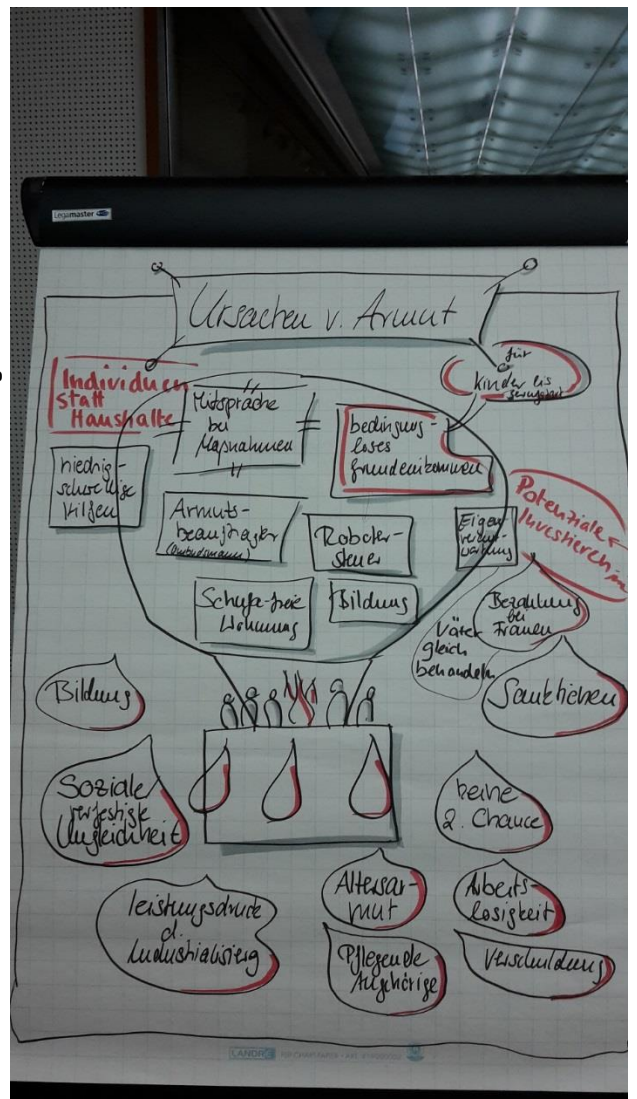 Legamaster
Ursachen v. Armut
für
kinder bis
Individuen
statt
Haushalte
Mitsprache
bei
Maßnahmen
bedingung-
loses
Grundeinkommen
niedrig-
schwellige
Hilfen
Armuts-
beauftragter
(Ombudsmann)
Roboter-
steuer
Eigen
Potenziale
Investieren in
Schufa-freie
Wohnung
Bildung
Bezahlung
bei
Frauen
Väter
gleich
behandeln
Sanktionen
Bildung
Soziale
verfestigte
Ungleichheit
keine
2. Chance
Leistungsdruck
d.
Industrialisierg
Altersar-
mut
Arbeits-
losigkeit
Pflegende
Angehörige
Verschuldung
LANDRÉ